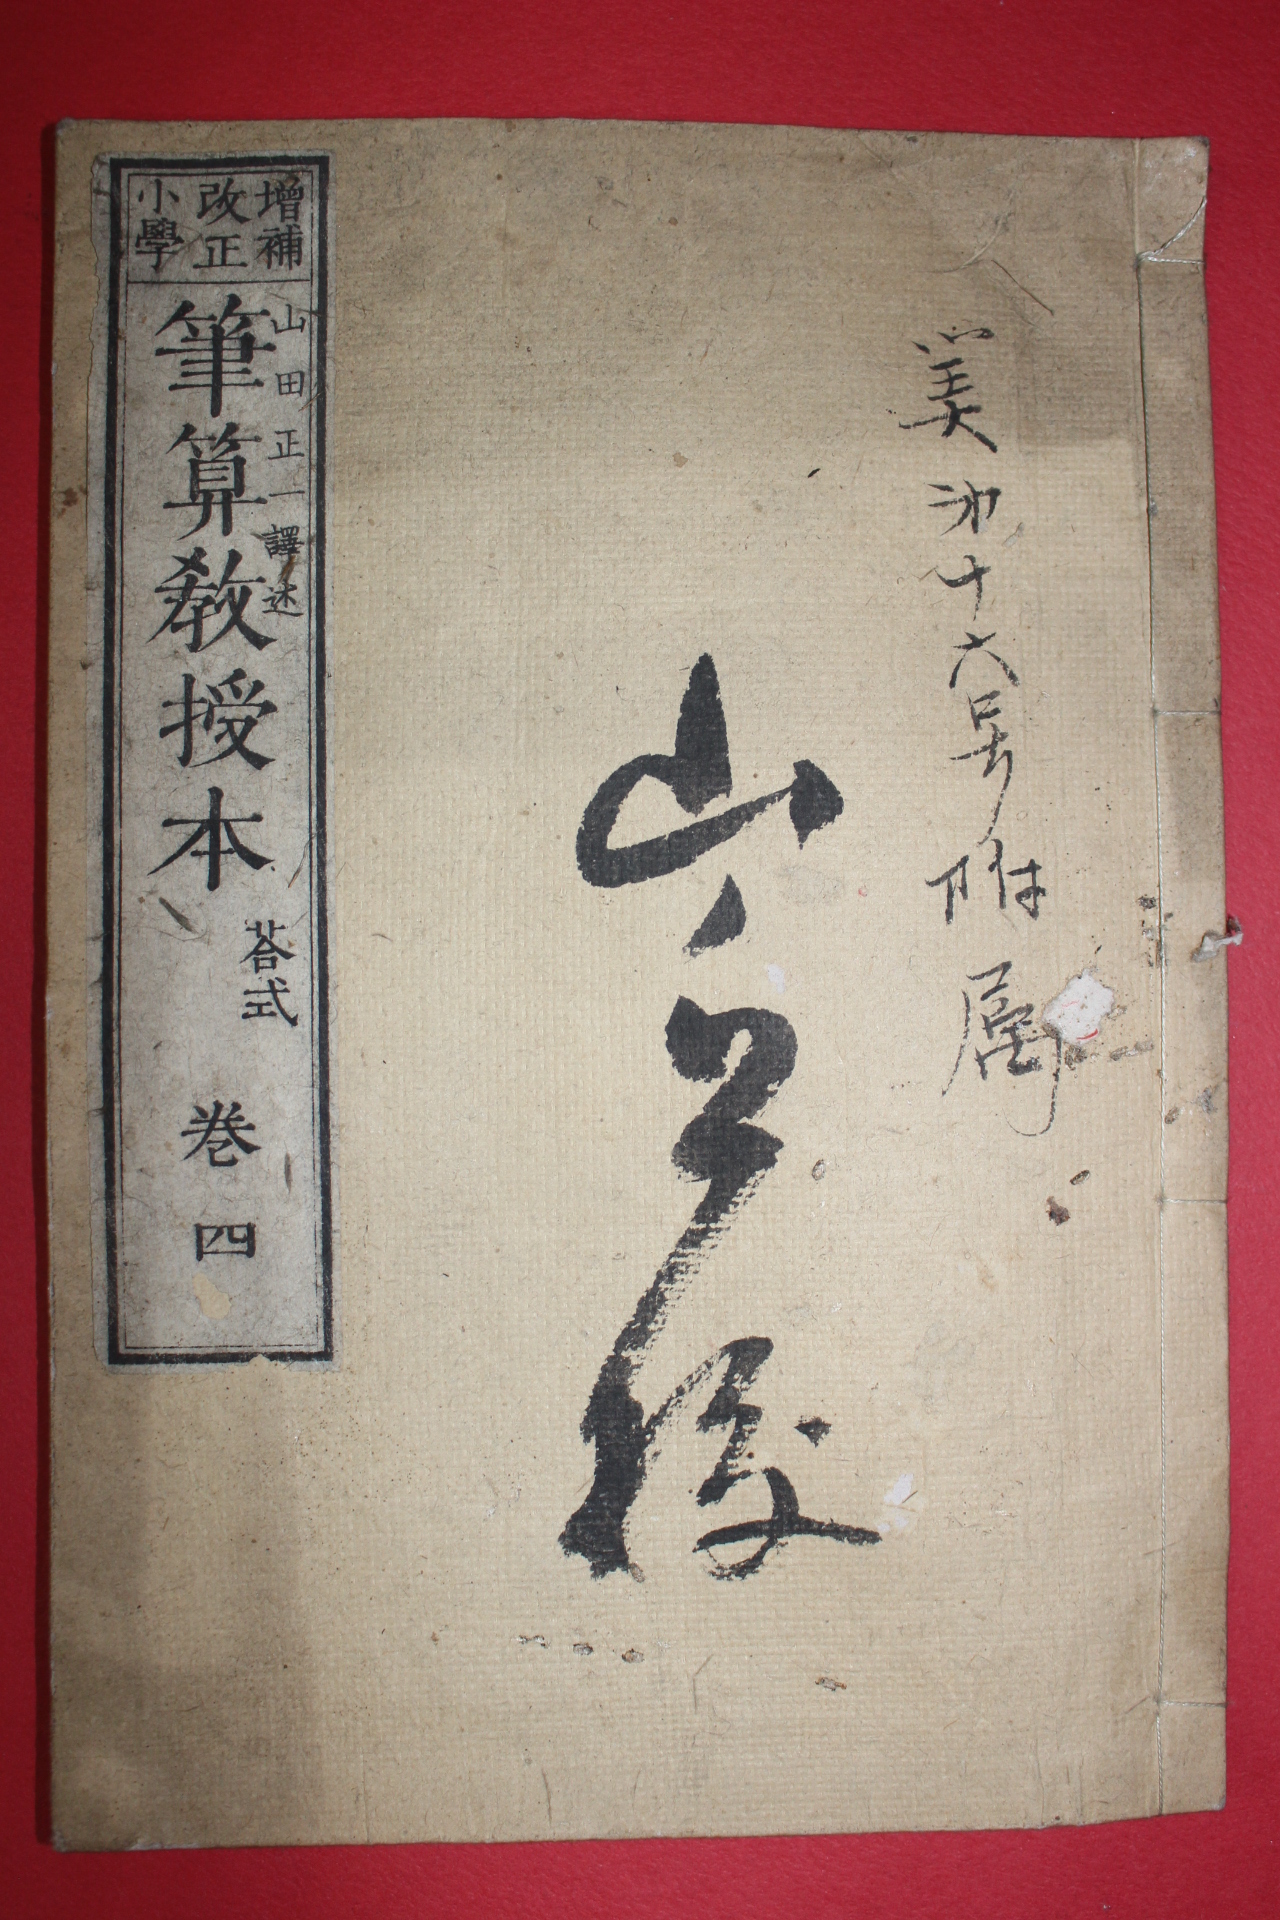 美第十六号附属
山之口校
増補
改正
小學
山田正一譯述
筆算教授本
荅式
巻四